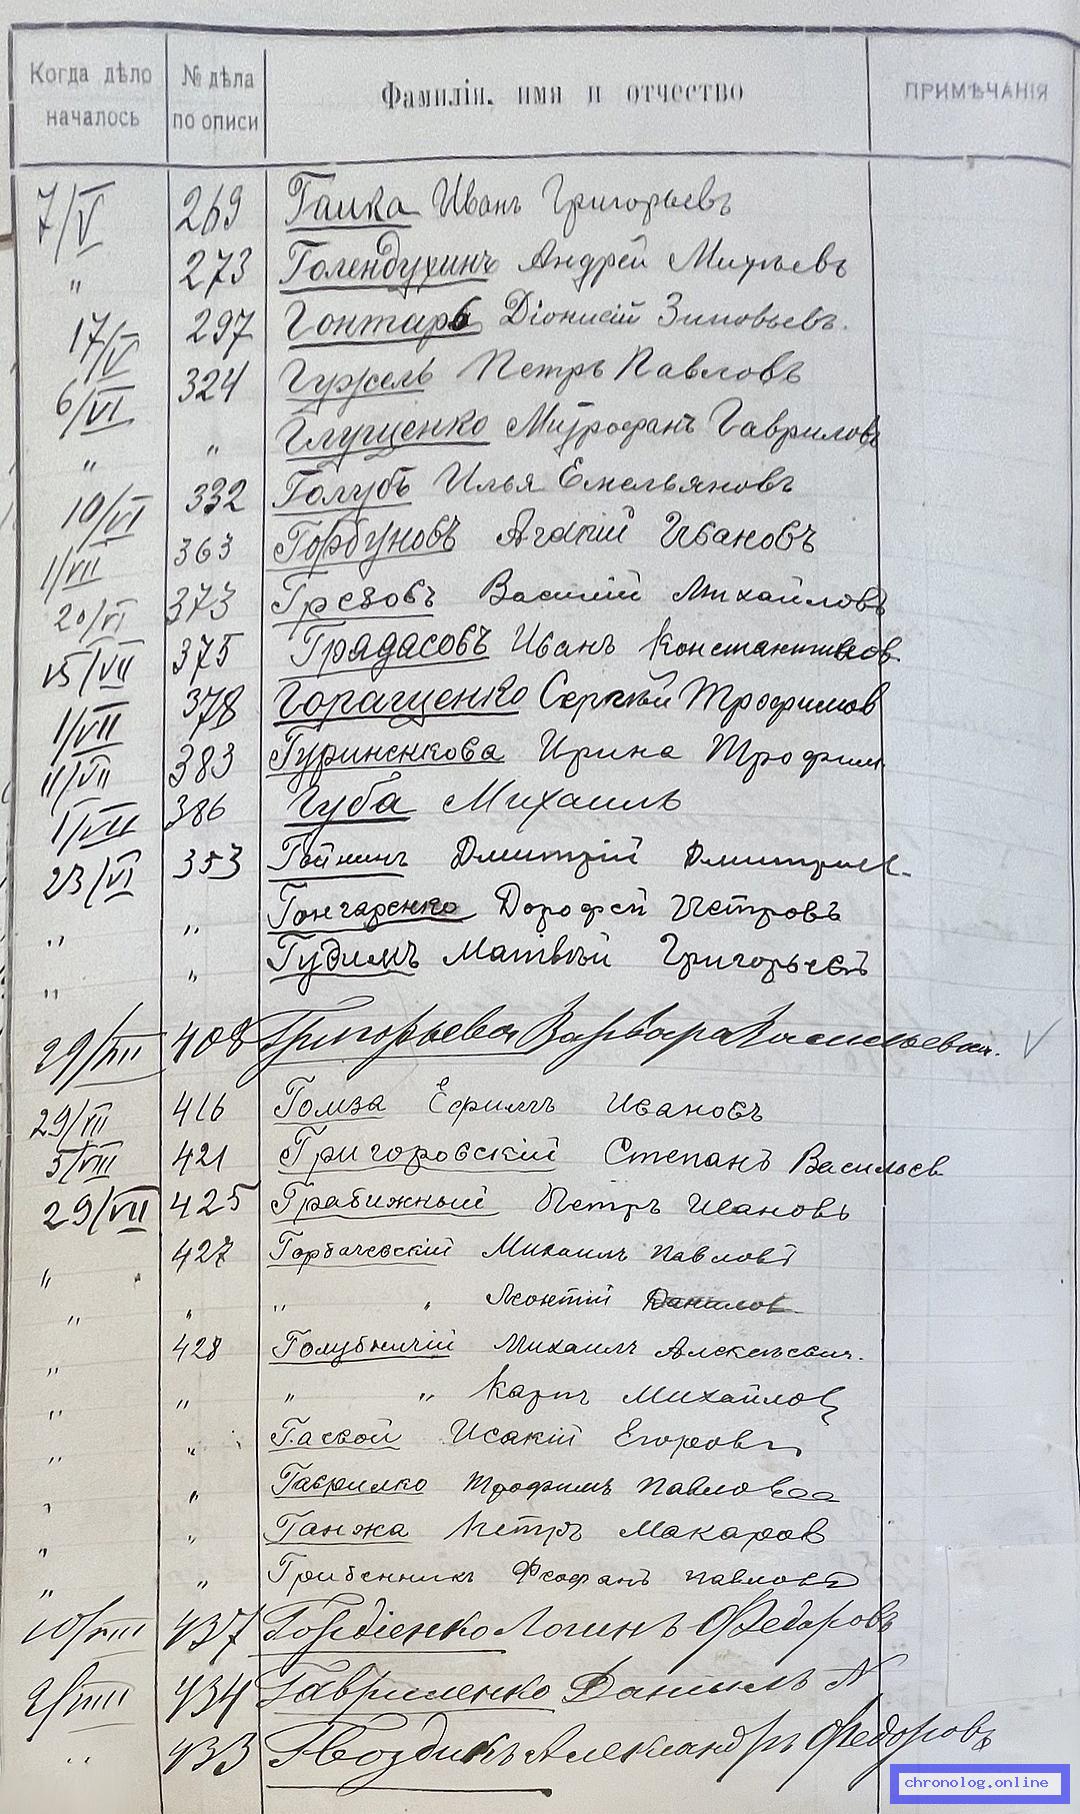 Когда дѣло началось № дѣла по описи Фамилія, имя и отчество ПРИМѢЧАНІЯ
7/V 269 Галка Иванъ Григорьевъ
" 273 Голендухинъ Андрей
17/V 297 Гонтарь Діонисій Зиновьевъ.
6/VI 324 Гужель Петръ Павловъ
" " Глущенко Митрофанъ Гавриловъ
10/VI 332 Голубъ Илья Емельяновъ
1/VII 363 Горбуновъ Ивановъ
20/VI 373 Грезовъ Василий Михайловъ
15/VII 375 Градасовъ Иванъ Константинов
1/VII 378 Горащенко Сергѣй Трофимов
11/VII 383 Гуриненкова Ирина Трофим
1/VII 386 Губа Михаилъ
23/VI 353 Гойнинъ Дмитрій Дмитриев.
" " Гончаренко Дорофей Петровъ
" " Гудимъ Матвѣй Григорьевъ
29/VII 408 Григорьева Варвара Васильевна.
29/VII 416 Гомза Ефимъ Ивановъ
5/VIII 421 Григоровскій Степанъ Васильев
29/VII 425 Грабижный Петръ Ивановъ
" 427 Горбачевскій Михаилъ Павловъ
" " " " Леонтій Данилов
" 428 Голубничій Михаилъ Алексѣевич.
" " " " Карпъ Михайлов
" " Гасвой Исакій Егоровъ
" " Гаврилко Трофимъ Павлов
" " Ганжа Петръ Макаров
" " Грибенникъ Феофанъ Павловъ
10/VIII 437 Гордіенко Логинъ Федоровъ
2/VIII 434 Гавриленко Даниилъ N
" 433 Гвоздикъ Александръ Федоровъ
chronolog.online